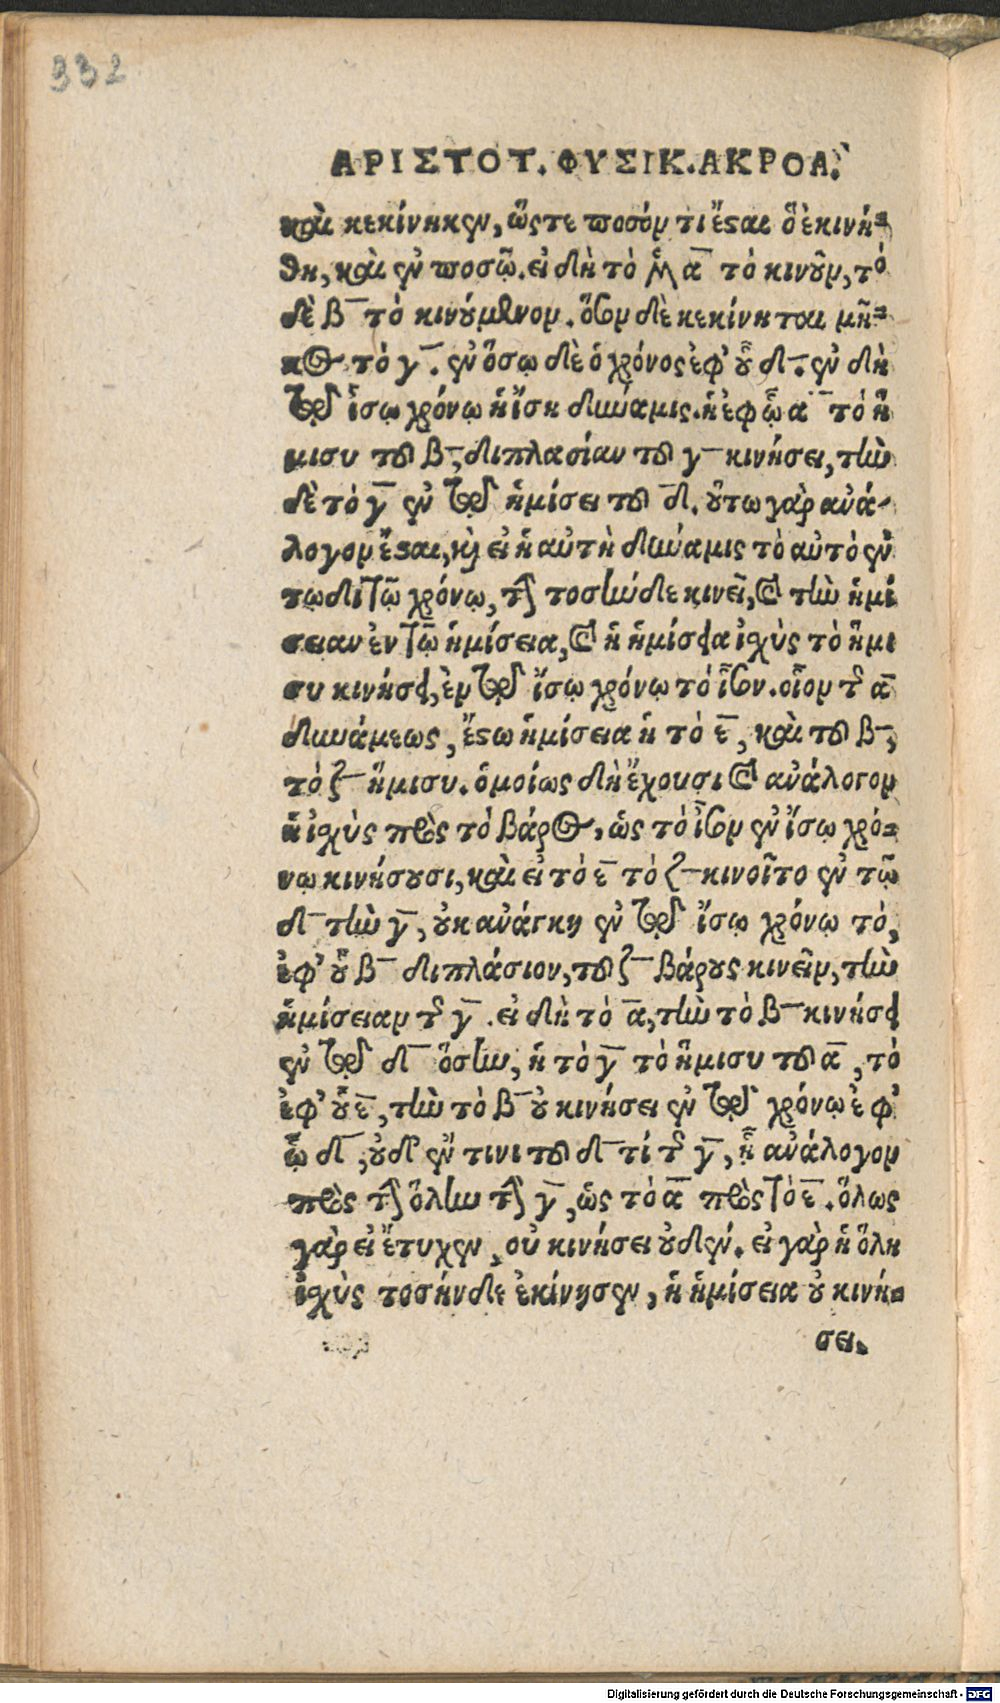 332
ΑΡΙΣΤΟΤ. ΦΥΣΙΚ. ΑΚΡΟΑ.
καὶ κεκίνηκεν, ὥςτε ποσόν τι ἔςαι ὃ ἐκινή-
θη, καὶ ἐν ποσῷ. εἰ δὴ τὸ μὲν α̅ τὸ κινοῦν, τὸ
δὲ β̅ τὸ κινούμενον. ὅσον δὲ κεκίνηται μῆ-
κος τὸ γ̅. ἐν ὅσῳ δὲ ὁ χρόνος ἐφ' οὗ δ̅. ἐν δὴ
τῷ ἴσῳ χρόνῳ ἡ ἴση δύναμις. ἡ ἐφ ᾧ α̅ τὸ ἥ
μισυ τοῦ β̅, διπλασίαν τοῦ γ̅ κινήσει, τὴν
δὲ τὸ γ̅ ἐν τῷ ἡμίσει τοῦ δ̅. οὕτω γὰρ ἀνά-
λογον ἔςαι, καὶ εἰ ἡ αὐτὴ δύναμις τὸ αὐτὸ ἐν
τῳδὶ τῷ χρόνῳ, τὴν τοσήνδε κινεῖ, καὶ τὴν ἡμί
σειαν ἐν τῷ ἡμίσεια, καὶ ἡ ἡμίσεια ἰχὺς τὸ ἥμι
συ κινήσει, ἐν τῷ ἴσῳ χρόνῳ τὸ ἴσον. οἷον τῆς α̅
δυνάμεως, ἔςω ἡμίσεια ἡ τὸ ε̅, καὶ τοῦ β̅,
τὸ ζ̅ ἥμισυ. ὁμοίως δὴ ἔχουσι καὶ ἀνάλογον
ἡ ἰχὺς πρὸς τὸ βάρος, ὡς τὸ ἴσον ἐν ἴσῳ χρό-
νῳ κινήσουσι, καὶ εἰ τὸ ε̅ τὸ ζ̅ κινοῖτο ἐν τῷ
δ̅ τὴν γ̅, οὐκ ἀνάγκη ἐν τῷ ἴσῳ χρόνῳ τὸ,
ἐφ' οὗ β̅ διπλάσιον, τοῦ ζ̅ βάρους κινεῖν, τὴν
ἡμίσειαν τῆς γ̅. εἰ δὴ τὸ α̅, τὴν τὸ β̅ κινήσει
ἐν τῷ δ̅ ὅσην, ἡ τὸ γ̅ τὸ ἥμισυ τοῦ α̅, τὸ
ἐφ' οὗ ε̅, τὴν τὸ β̅ οὐ κινήσει ἐν τῷ χρόνῳ ἐφ'
ᾧ δ̅, οὐδ' ἔν τινι τοῦ δ̅ τί τῆς γ̅, ᾗ ἀνάλογον
πρὸς τὴν ὅλην τὴν γ̅, ὡς τὸ α̅ πρὸς τὸ ε̅. ὅλως
γὰρ εἰ ἔτυχεν, οὐ κινήσει οὐδέν. εἰ γὰρ ἡ ὅλη
ἰχὺς τοσήνδε ἐκίνησεν, ἡ ἡμίσεια οὐ κινή-
σει.
Digitalisierung gefördert durch die Deutsche Forschungsgemeinschaft - DFG